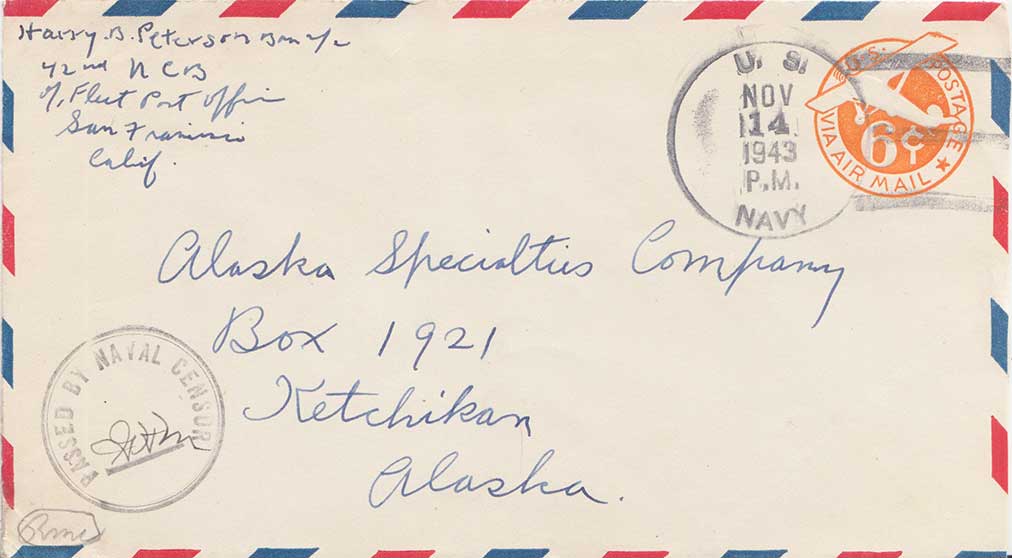 Harry B. Peterson Bm 2/c
42nd N C B
c/o Fleet Post Office
San Francisco
Calif.
U. S.
NOV
14
1943
P.M.
NAVY
U.S. POSTAGE
6¢
VIA AIR MAIL
Alaska Specialties Company
Box 1921
Ketchikan
Alaska.
PASSED BY NAVAL CENSOR